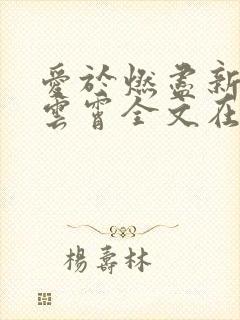 愛於燃盡新
雲霄全文在
楊壽林